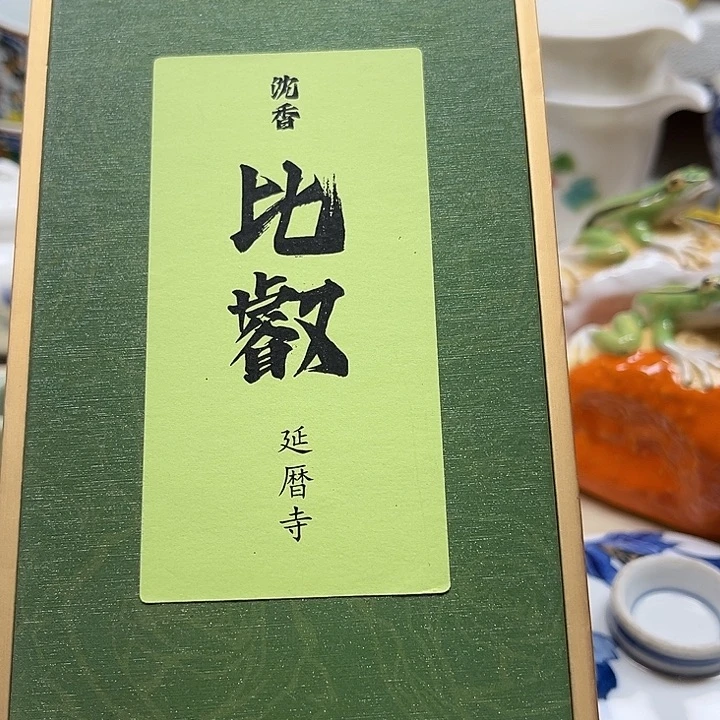 沈香
比叡
延暦寺